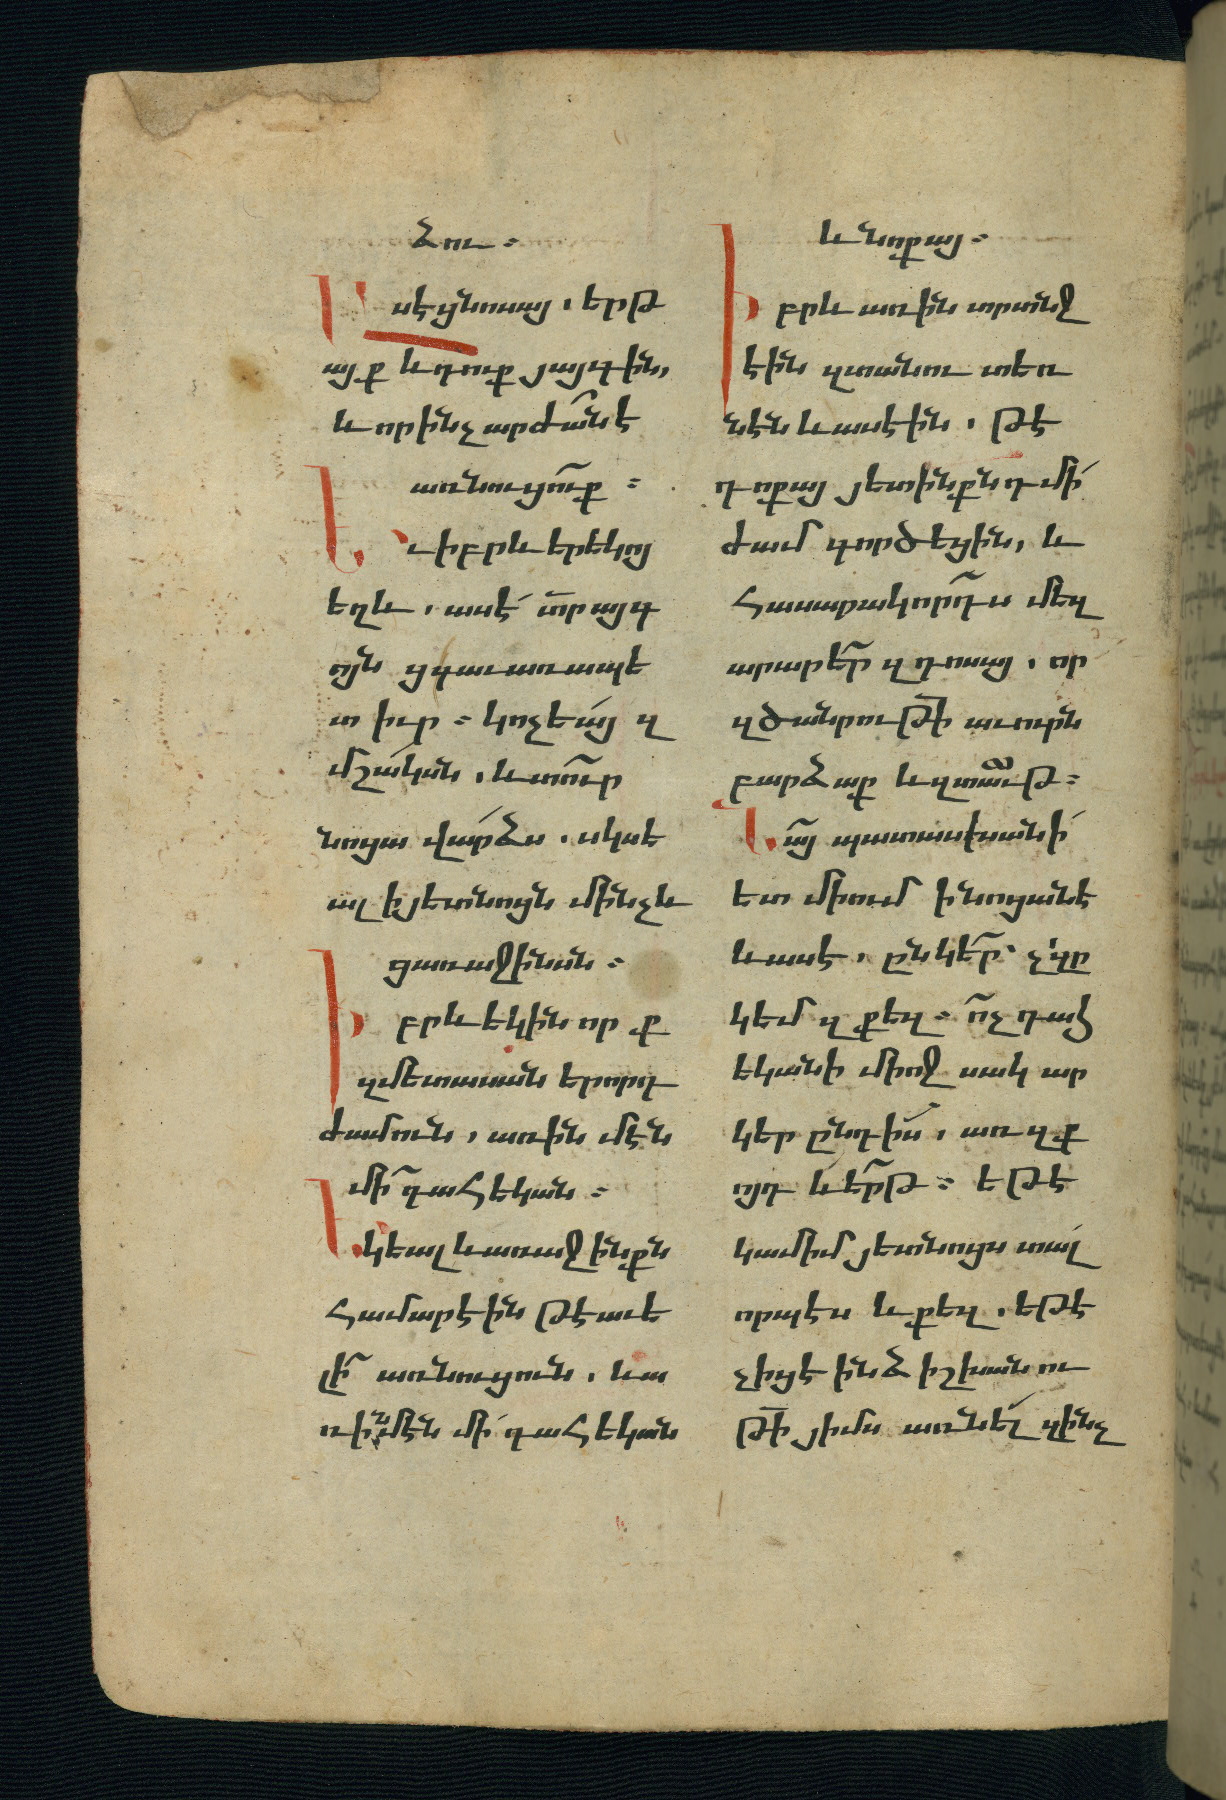 ձու ։
Ասէցնոսայ . երթ
այք և դուք յայգին,
և որ ինչ արժան է
առնուցուք ։
Եւ իբրև երեկոյ
եղև . ասէ տր այգ
ոյն ցգաւառապե
տ իւր ։ կոչեա՛ց զ
մշակսն . և տուր
նոցա վարձս . սկսե
ալ ի յետնոյն մինչև
ցառաջինսն ։
Իբրև եկին որ ք
զմետասան երորդ
ժամուն , առին մէն
մի դահեկան ։
Եկեալ և առաջինքն
համարէին թէ աւե
լի առնուցուն . և ա
ռին մէն մի դահեկան
և նոքայ ։
Իբրև առին տրտնջ
էին զտանու տեռ
նէն և ասէին . թէ
դոքայ յետինքնդ մի
ժամ գործեցին, և
հասարակորդս մեզ
արարեր զդոսայ . որ
զծանրութի աւուրն
բարձաք և զտաւթ ։
Նայ պատասխանի
ետ միում ի նոցանէ
և ասէ . ընկեր չզր
կեմ զքեզ ։ ոչ դահ
եկանի միոջ սակ ար
կեր ընդիս . առ զք
ոյդ և երթ ։ եթէ
կամիմ յետնոյս տալ
որպէս և քեզ . եթէ
չիցէ ինձ իշխանու
թի յիմս առնել զինչ